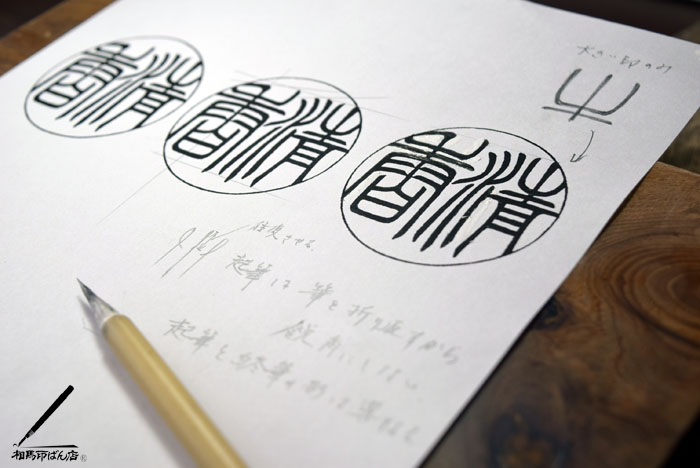 大きい印のみ
清
清
清
往復させる。
起筆は筆を折り返すから
鋭角にしない。
起筆と終筆の形は
相馬印ばん店®